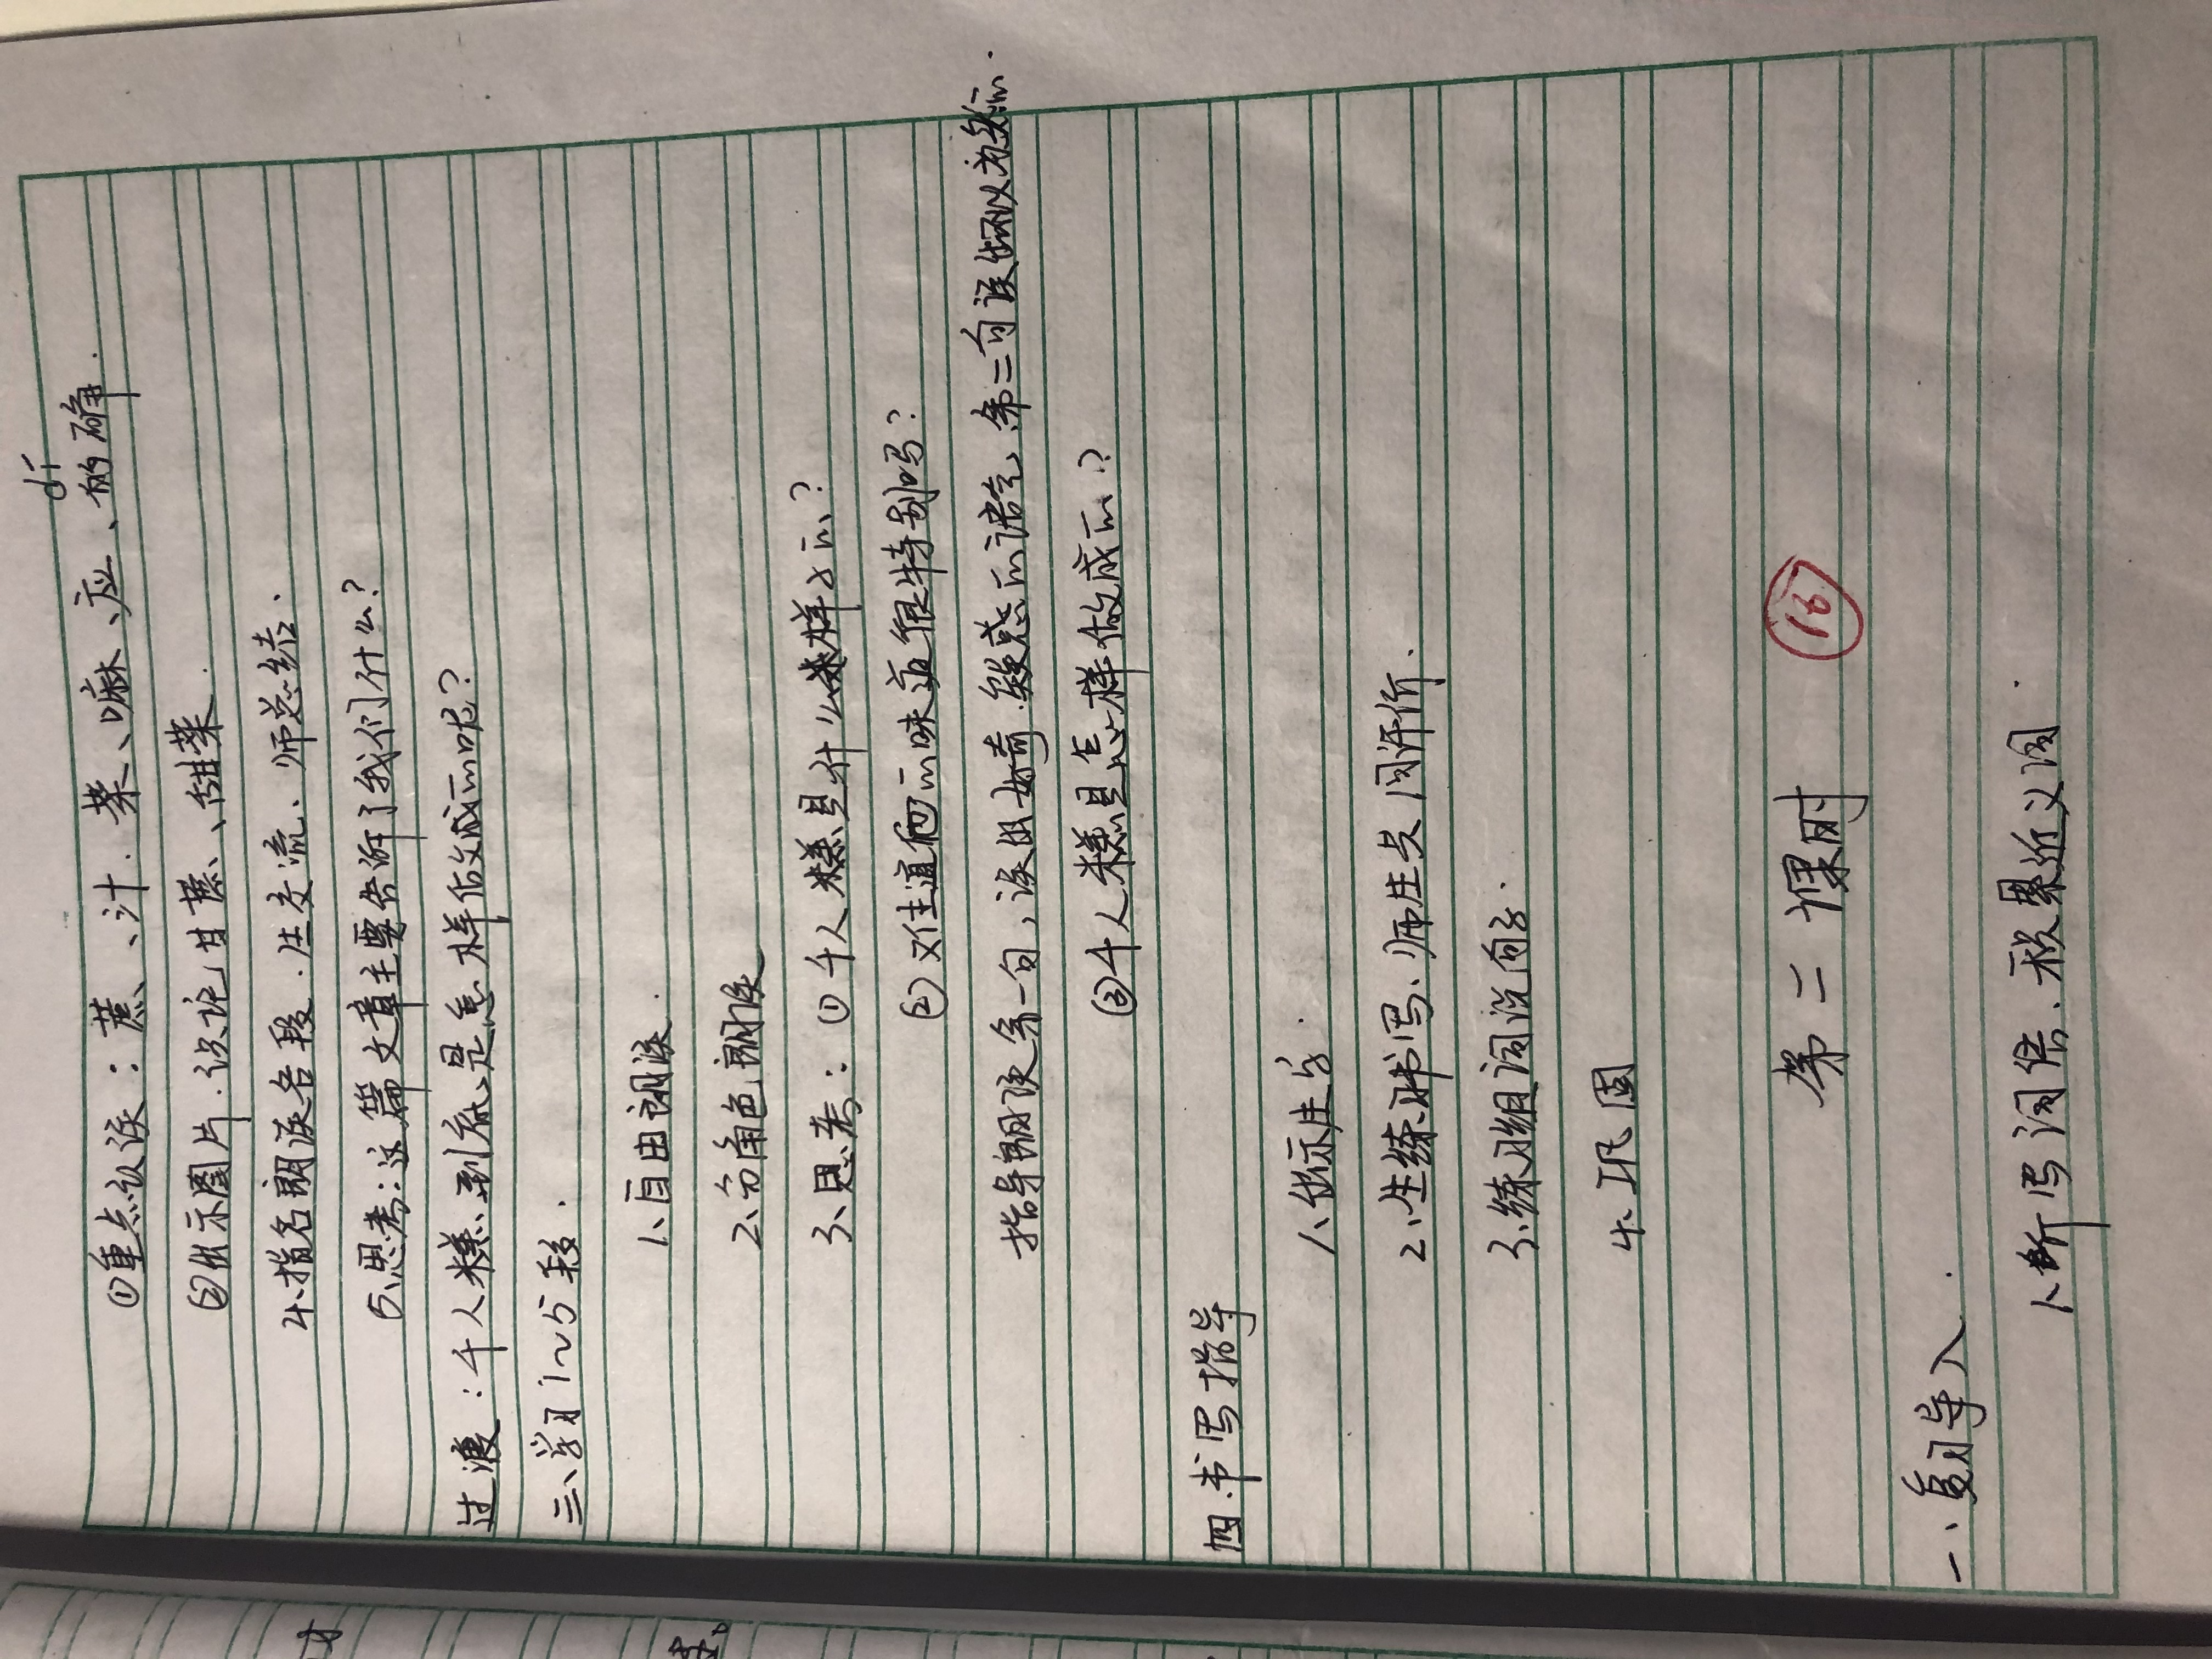 dí
①重点认读：蔗、汁、菜、嘛、应、的确.
②出示图片.识记甘蔗、甜菜.
4、指名朗读各段.生交流、师总结.
5、思考：这篇文章主要告诉了我们什么?
过渡：千人糕到底是怎样做成的呢?
三、学习1~5段.
1、自由朗读.
2、分角色朗读
3、思考：①千人糕是什么样子的?
②难道它的味道很特别吗?
指导朗读第一句，读出好奇.疑惑的语气、第二句读出不以为然.
③千人糕是怎样做成的?
四.书写指导
1、出示生字.
2、生练习书写、师生共同评价.
3、练习组词说句子.
4、巩固
第二课时
16
一、复习导入.
1、听写词语、积累近义词.